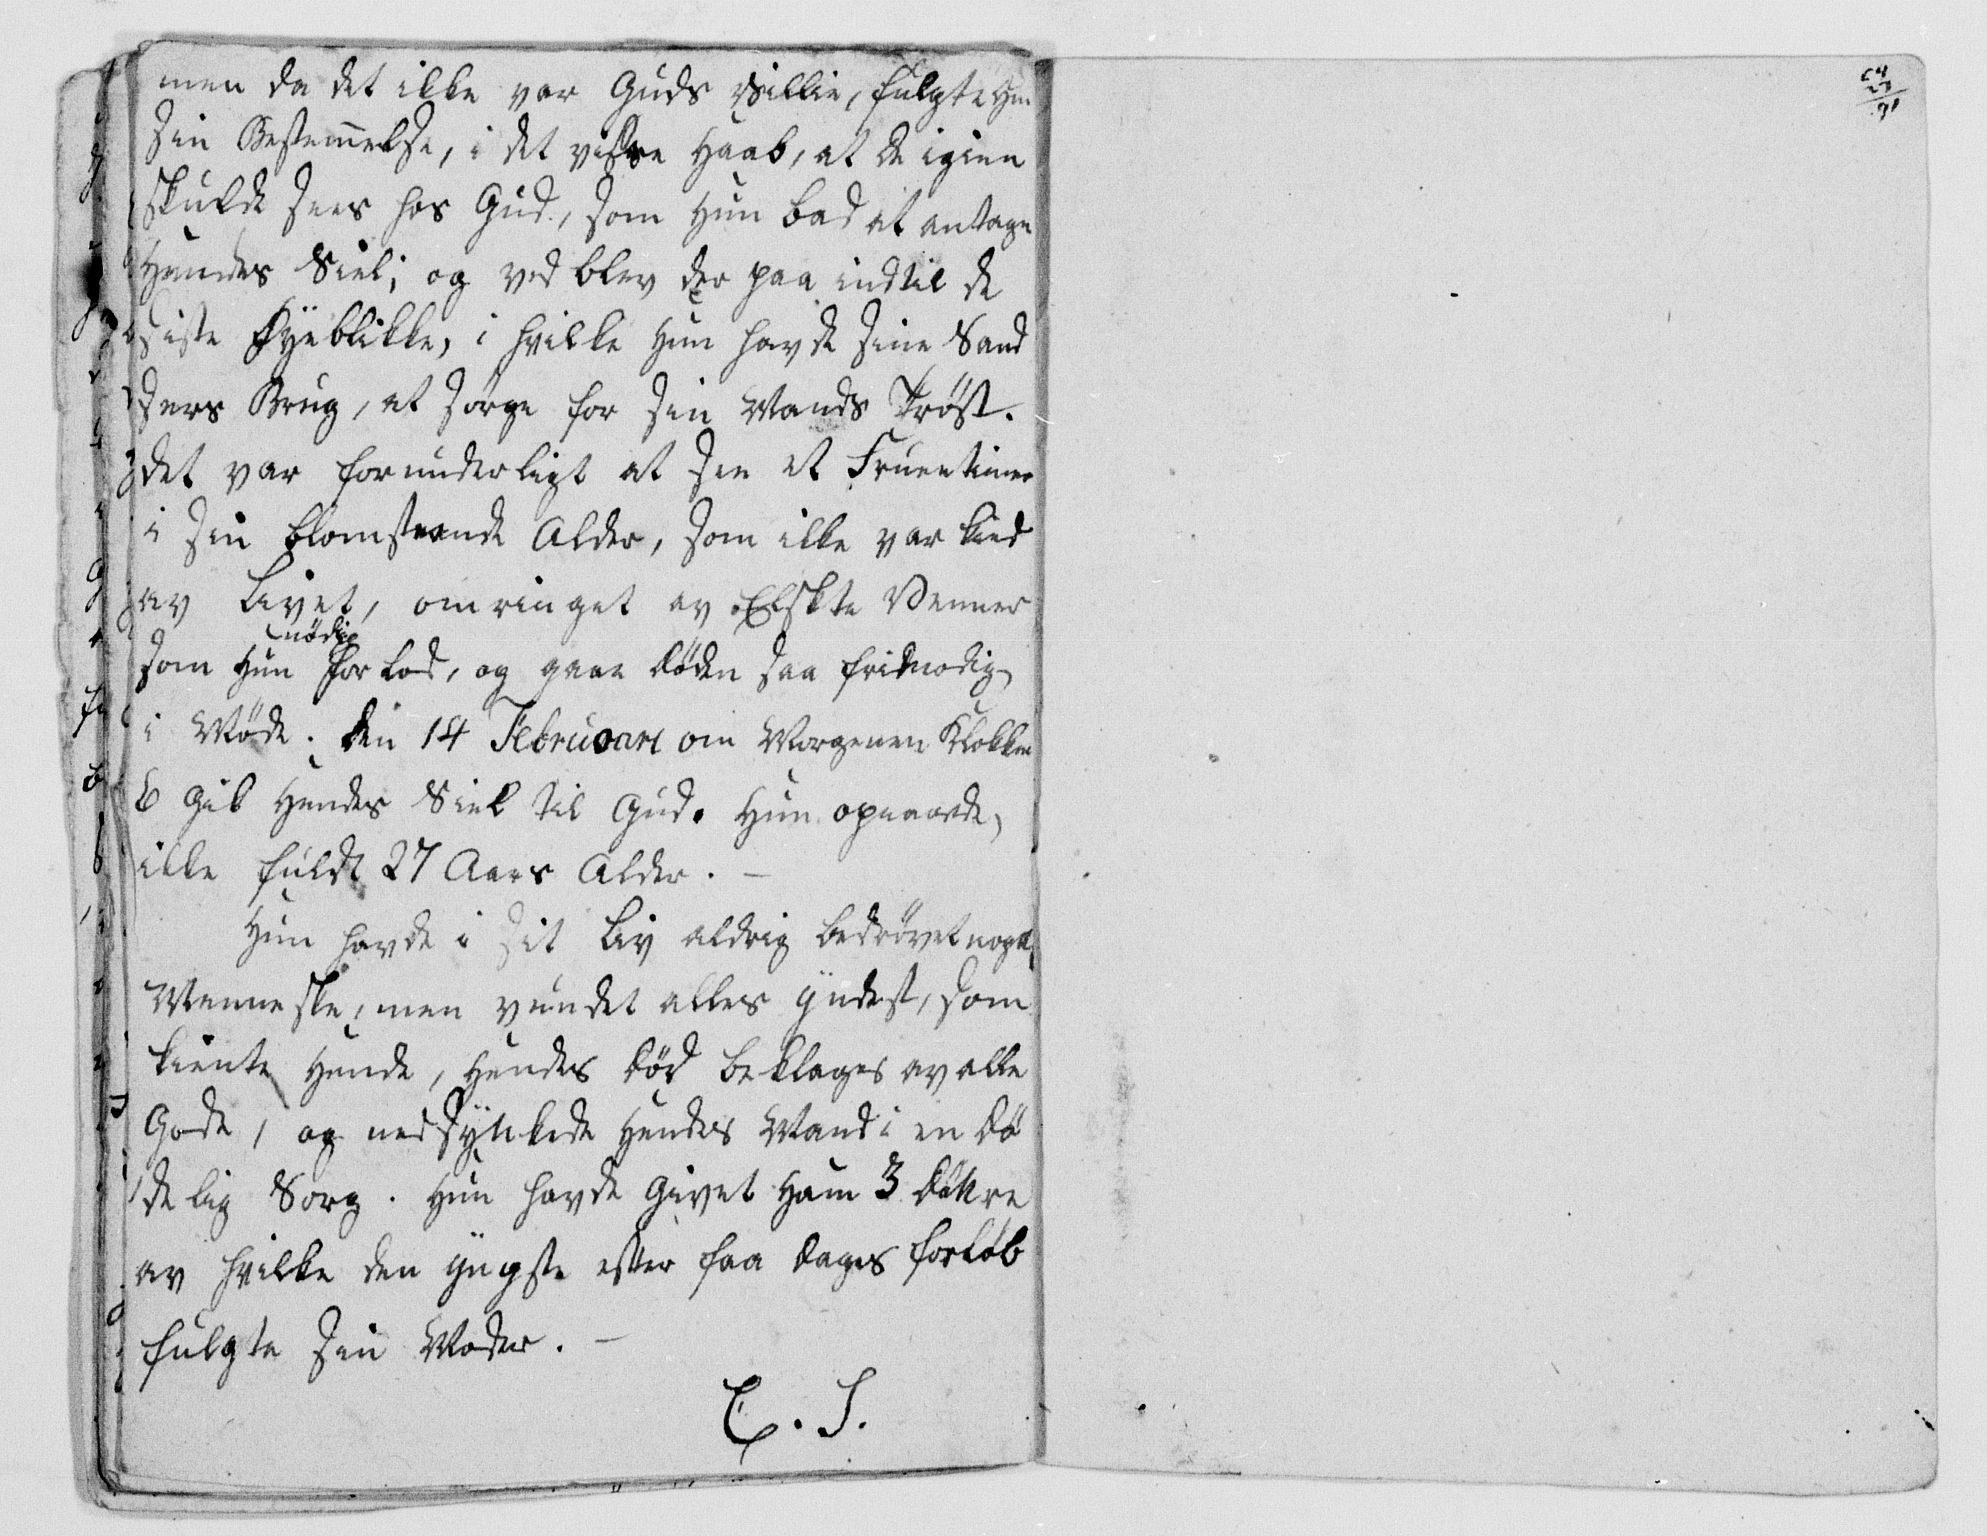 men da det ikke var Guds Villie, fulgte Hun
Sin Bestemmelse, i det visse Haab, at de igien
skulde sees hos Gud, som Hun bad at antage
Hendes Siel; og ved blev der paa indtil de
Siste Øÿeblikke, i hvilke Hun havde sine Sand
sers Brug, at sørge for sin Mands Trøst.
det var forunderligt at see et Fruentimer
i sin blomstrende Alder, som ikke var kied
av Livet, omringet av Elskte Venner
nødig
som Hun forlod, og gaae døden saa frimodig
i Møde. den 14 Februari om Morgenen Klokken
6 Gik Hendes Siel til Gud. Hun opnaaede,
ikke fuldt 27 Aars Alder. —
Hun havde i sit Liv aldrig bedrøvet noget
Menneske, men vundet alles ÿndest, som
kiente Hende, Hendes død beklages av alle
Gode, og nedsÿnkede Hendes Mand i en dø
delig Sorg. Hun havde Givet Ham 3 døttre
av hvilke den ÿngste efter faa dages forløb
fulgte sin Moder. —
E. S.